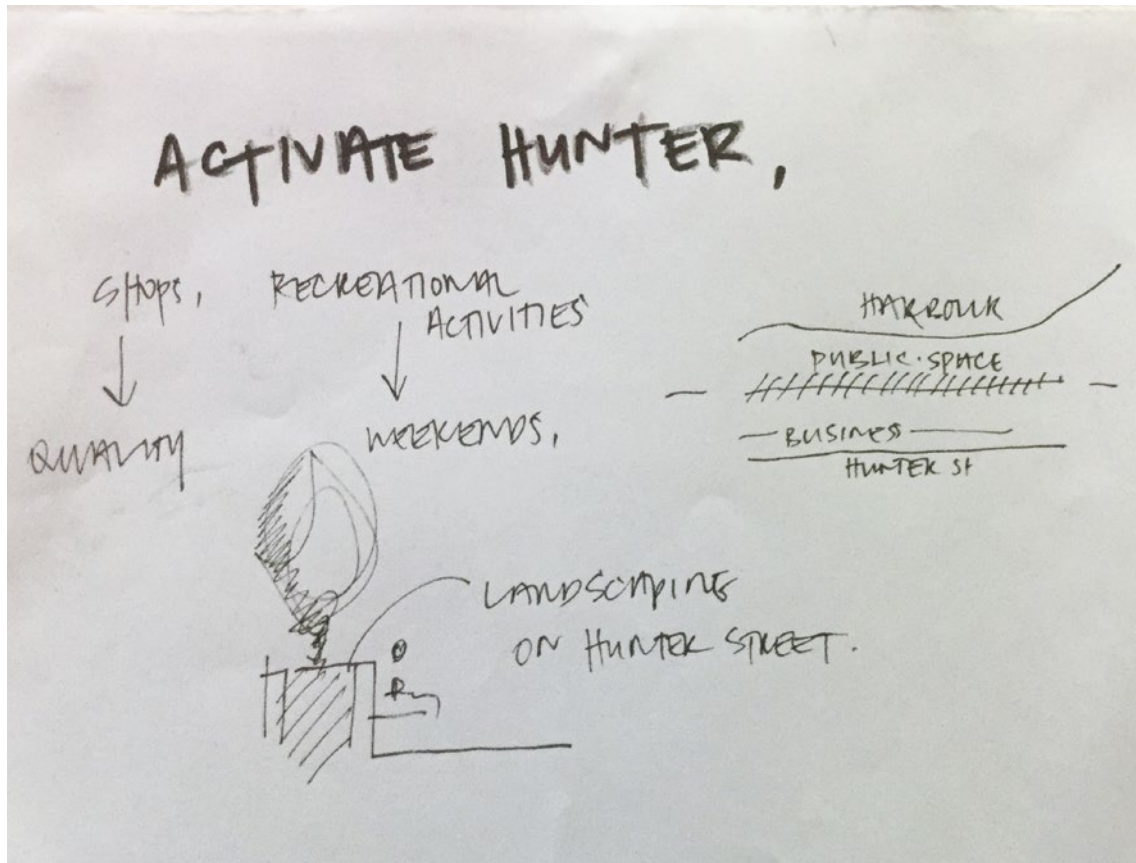 ACTIVATE HUNTER,
SHOPS, RECREATIONAL
ACTIVITIES
QUALITY
WEEKENDS,
HARBOUR
PUBLIC·SPACE
BUSINESS
HUNTER St
LANDSCAPING
ON HUNTER STREET.